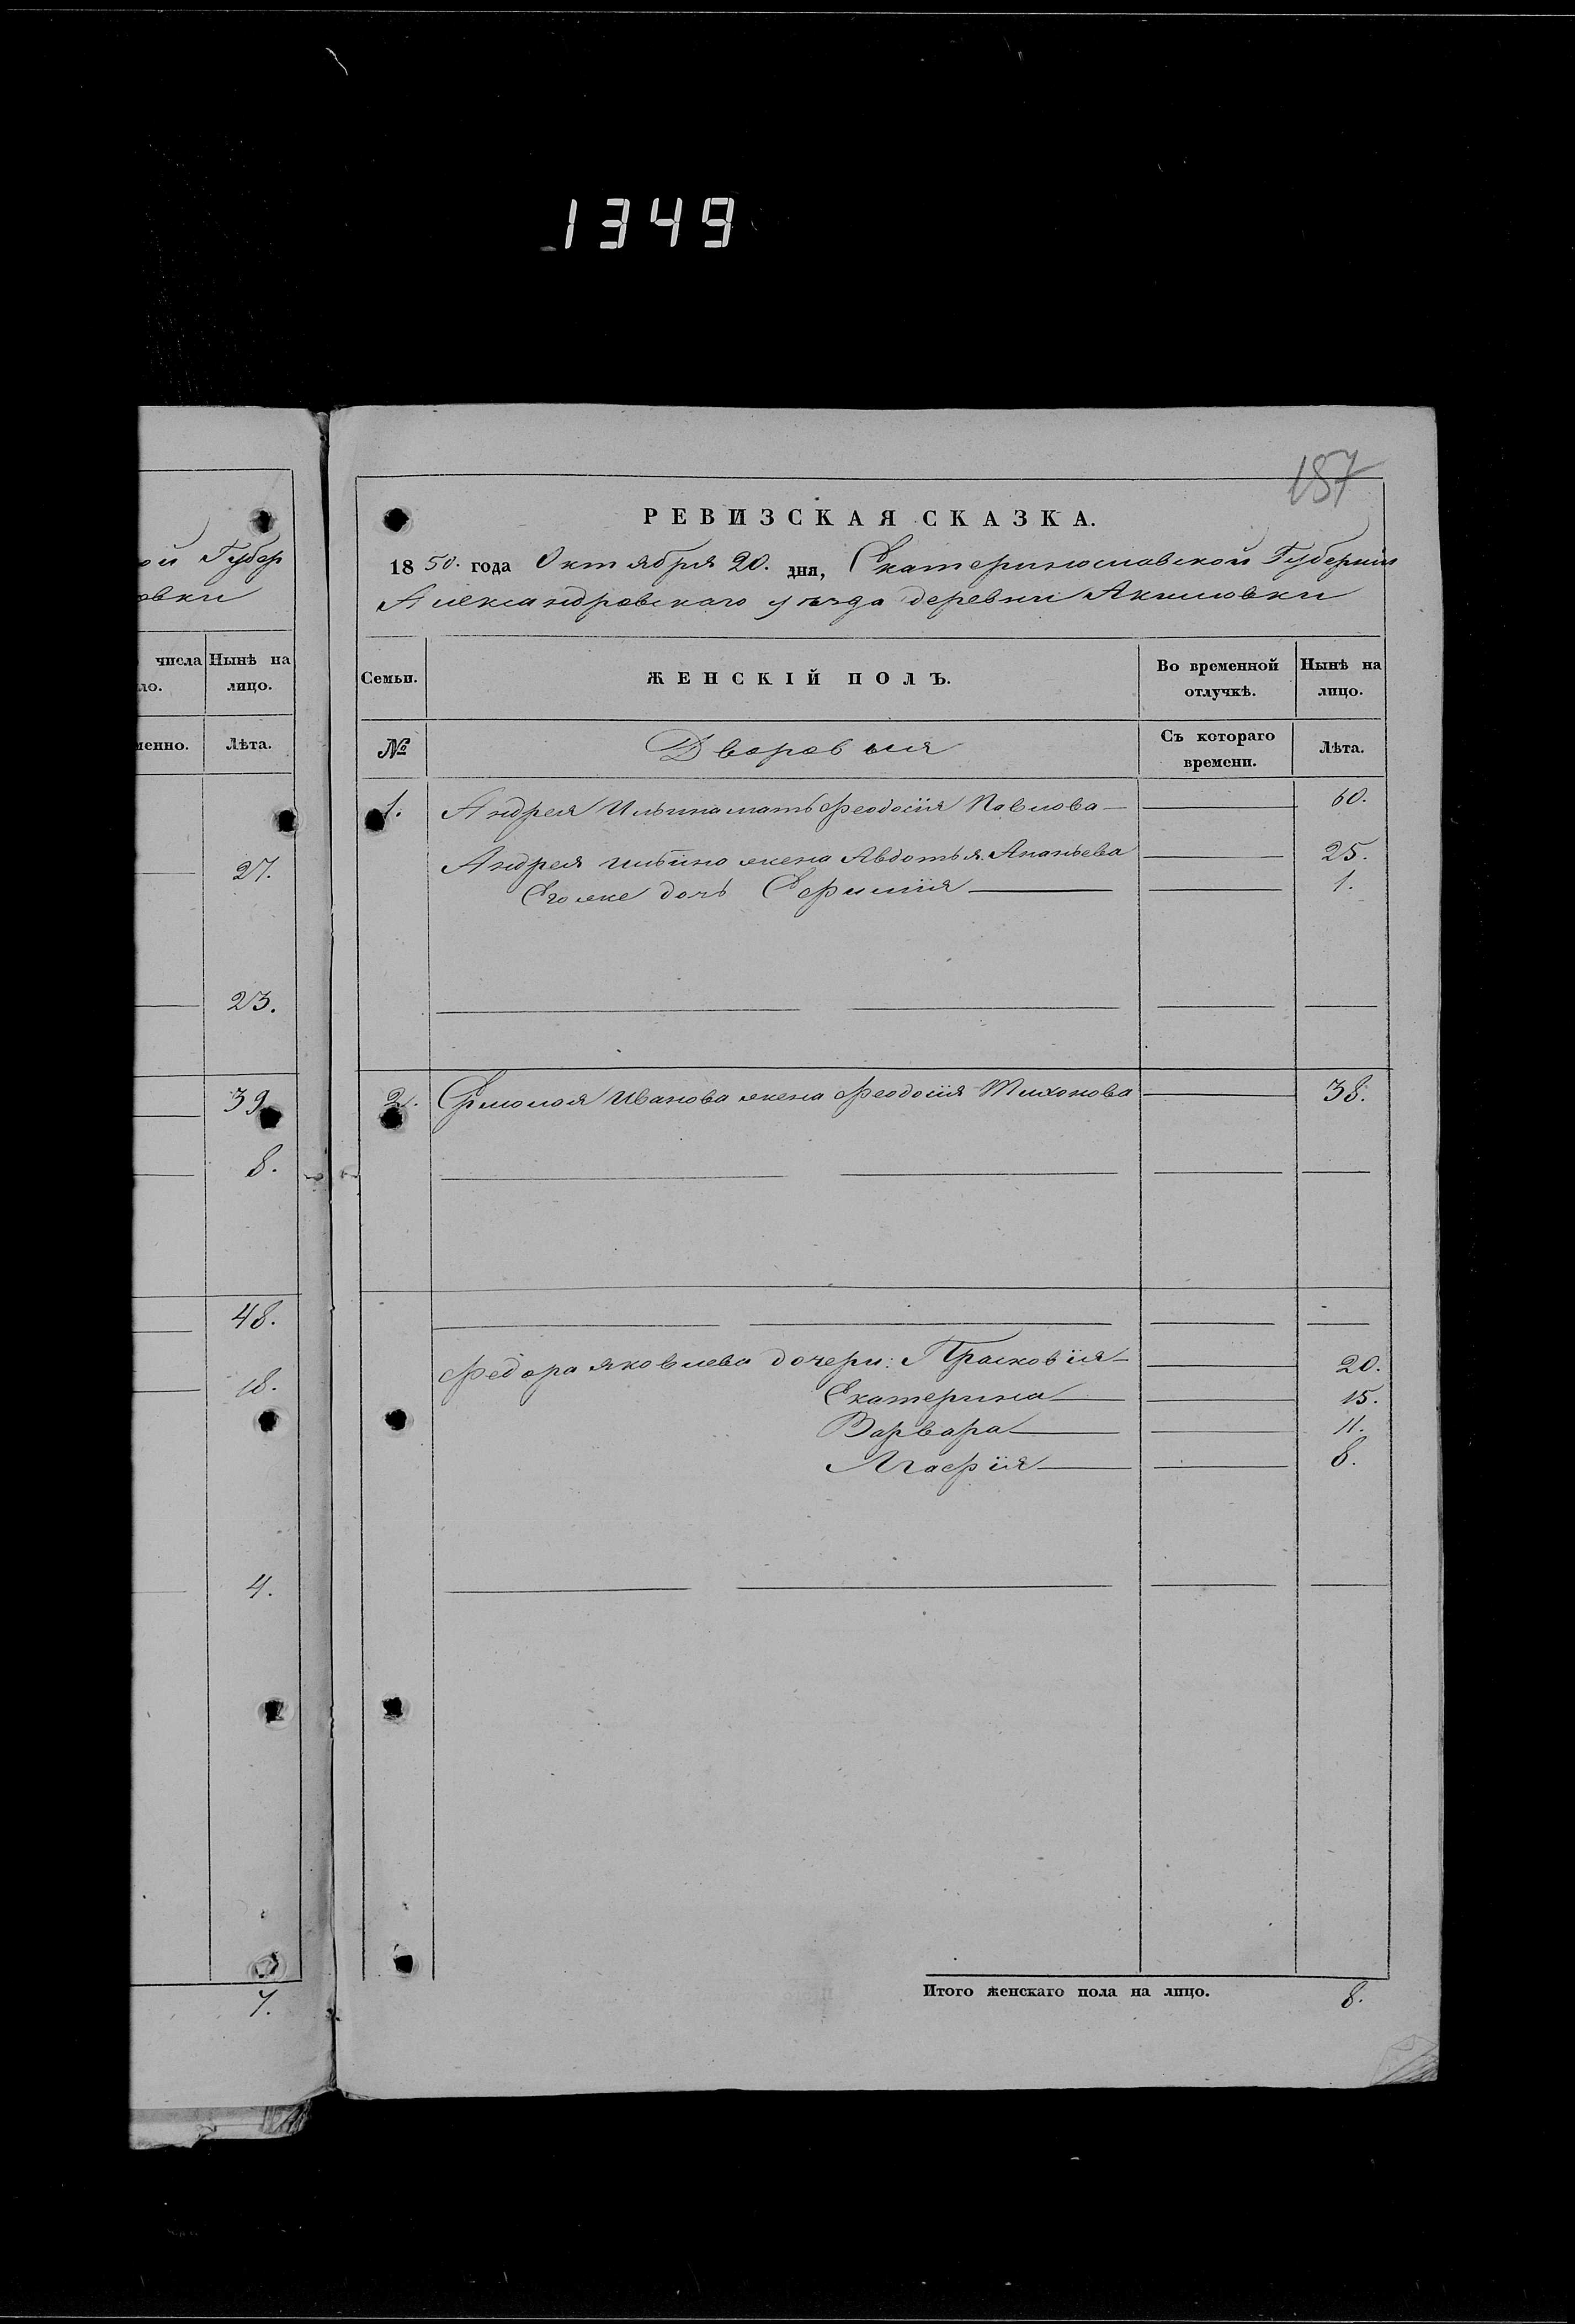 1349
ой Губер
овки
числа Нынѣ на
ло. лицо.
менно. Лѣта.
27.
23.
39
8.
48.
18.
4.
7.
187
РЕВИЗСКАЯ СКАЗКА.
1850. года Октября 20. дня, Екатеринославской Губерніи
Александровскаго уѣзда деревни Акимовки
Семьи. ЖЕНСКІЙ ПОЛЪ. Во временной отлучкѣ. Нынѣ на лицо.
№ Дворовыя Съ котораго времени. Лѣта.
1. Андрея Ильина мать Феодосія Павлова — 60.
Андрея Ильина жена Авдотья Ананьева — 25.
Егоже дочь Ефимія — 1.
2. Ермолая Иванова жена Феодосія Тихонова — 38.
Федора Яковлева дочери: Прасковія — 20.
Екатерина — 15.
Варвара — 11.
Агафія — 8.
Итого женскаго пола на лицо. 8.